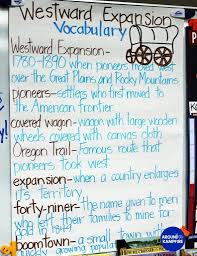 Westward Expansion
Vocabulary
Westward Expansion-
1780-1890 when pioneers moved west
over the Great Plains and Rocky Mountains
pioneers- settlers who first moved to
the American frontier.
covered wagon- wagon with large wooden
wheels covered with canvas cloth.
Oregon Trail- Famous route that
pioneers took west.
expansion- when a country enlarges
it's Territory.
forty-niner- the name given to men
who left their families to mine for
boomtown- a small town with
quickly growing popula
AROUND THE KAMPFIRE